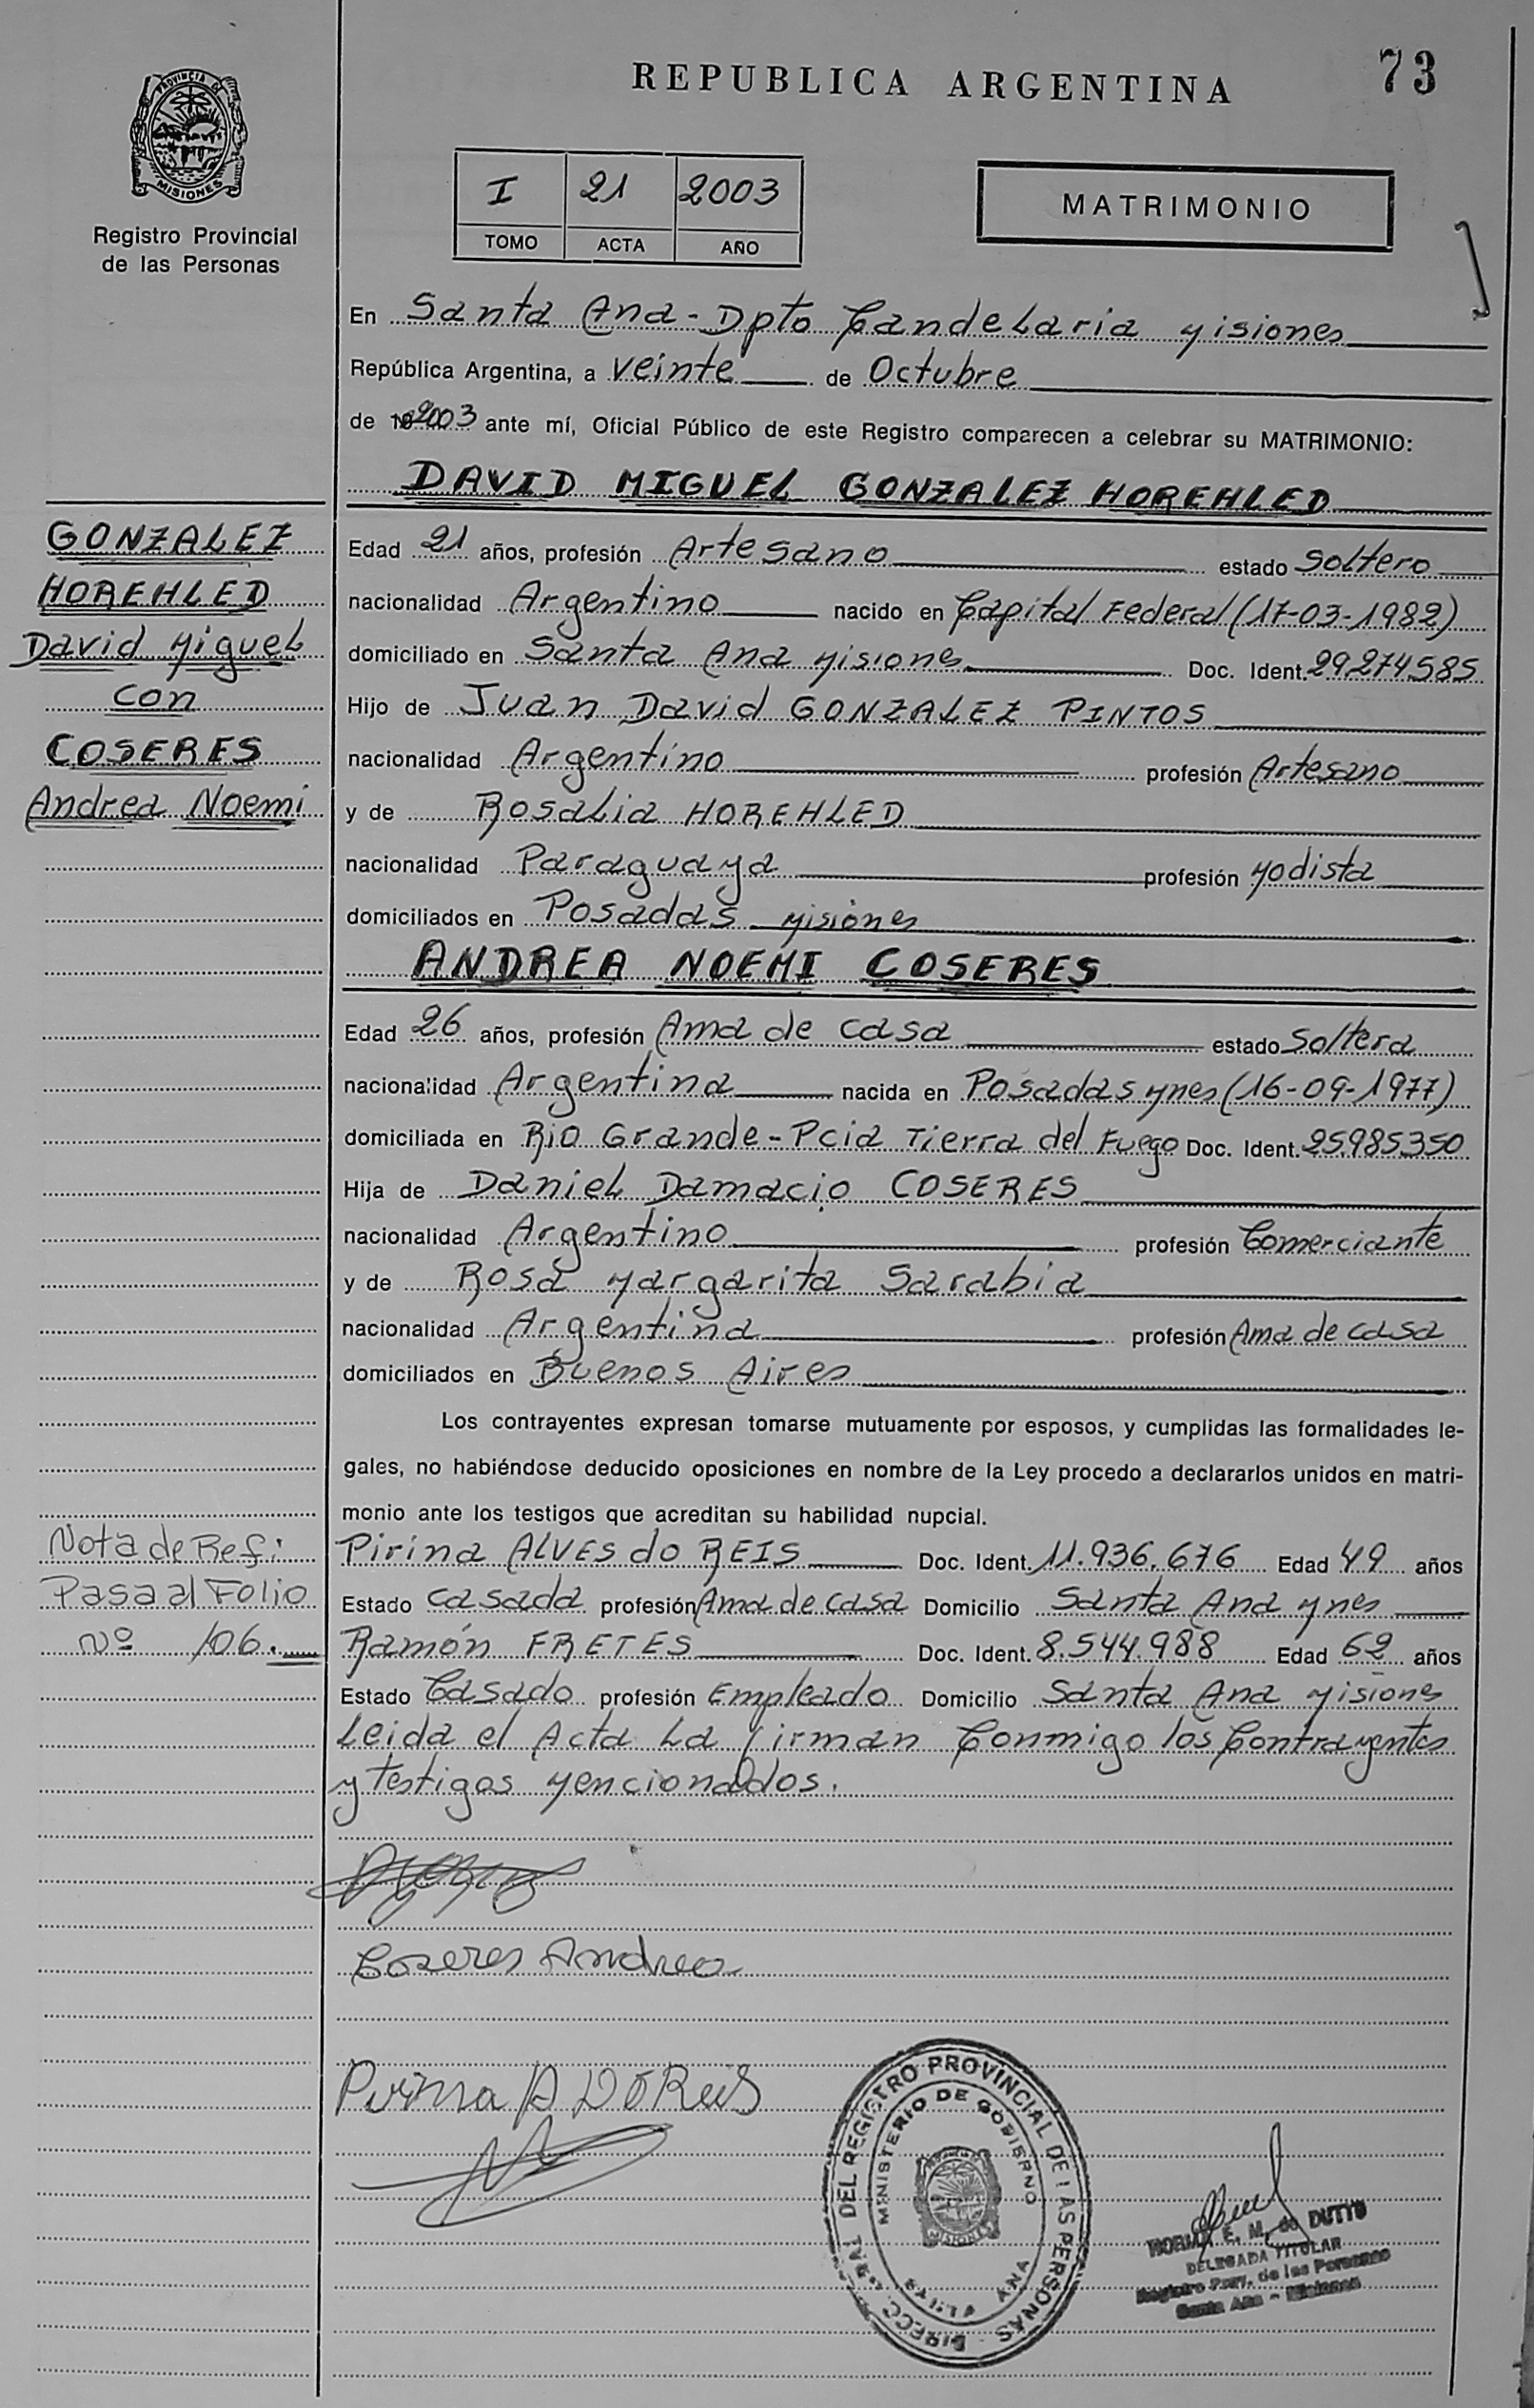 REPUBLICA ARGENTINA
73
PROVINCIA DE
MISIONES
Registro Provincial
de las Personas
I 21 2003
TOMO ACTA AÑO
MATRIMONIO
En Santa Ana - Dpto Candelaria Misiones
República Argentina, a veinte de Octubre
de 2003 ante mí, Oficial Público de este Registro comparecen a celebrar su MATRIMONIO:
DAVID MIGUEL GONZALEZ HOREHLED
GONZALEZ
HOREHLED
David Miguel
con
COSERES
Andrea Noemi
Edad 21 años, profesión Artesano estado Soltero
nacionalidad Argentino nacido en Capital Federal (17-03-1982)
domiciliado en Santa Ana Misiones Doc. Ident. 29.274.585
Hijo de Juan David GONZALEZ PINTOS
nacionalidad Argentino profesión Artesano
y de Rosalia HOREHLED
nacionalidad Paraguaya profesión Modista
domiciliados en Posadas Misiones
ANDREA NOEMI COSERES
Edad 26 años, profesión Ama de casa estado Soltera
nacionalidad Argentina nacida en Posadas Mnes (16-09-1977)
domiciliada en Rio Grande - Pcia Tierra del Fuego Doc. Ident. 25.985.350
Hija de Daniel Damacio COSERES
nacionalidad Argentino profesión Comerciante
y de Rosa Margarita Sarabia
nacionalidad Argentina profesión Ama de casa
domiciliados en Buenos Aires
Los contrayentes expresan tomarse mutuamente por esposos, y cumplidas las formalidades le-
gales, no habiéndose deducido oposiciones en nombre de la Ley procedo a declararlos unidos en matri-
monio ante los testigos que acreditan su habilidad nupcial.
Nota de Ref:
Pasa al Folio
Nº 106.
Pirina ALVES do REIS Doc. Ident. 11.936.676 Edad 49 años
Estado Casada profesión Ama de casa Domicilio Santa Ana Mnes
Ramón FRETES Doc. Ident. 8.544.988 Edad 62 años
Estado Casado profesión Empleado Domicilio Santa Ana Misiones
Leida el Acta La firman Conmigo los Contrayentes
y testigos Mencionados.
Coseres Andrea
Pirina A DO Reis
DIRECC. GRAL. DEL REGISTRO PROVINCIAL DE LAS PERSONAS
MINISTERIO DE GOBIERNO
SANTA ANA
NORMA E. M. de DUTTO
DELEGADA TITULAR
Registro Prov. de las Personas
Santa Ana - Misiones